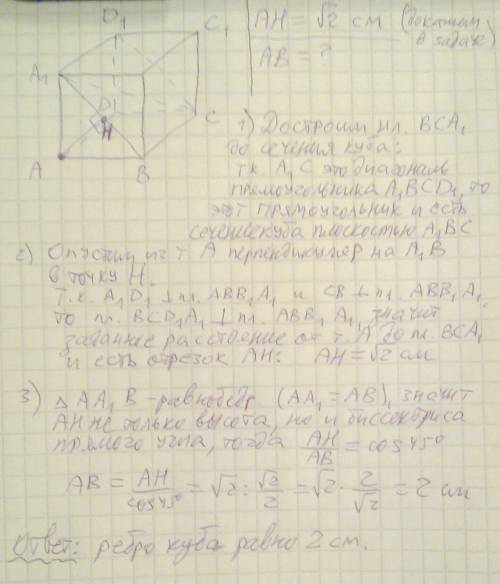 D₁
C₁
A₁
D
C
H
A
B
AH = √2 см (докажем
в задаче)
AB = ?
1) Достроим пл. BCA₁
до сечения куба:
т.к. A₁C это диагональ
прямоугольника A₁BCD₁, то
этот прямоугольник и есть
сечение куба плоскостью A₁BC
2) Опустим из т. A перпендикуляр на A₁B
в точку H.
Т.к. A₁D₁ ⊥ пл. ABB₁A₁ и CB ⊥ пл. ABB₁A₁,
то пл. BCD₁A₁ ⊥ пл. ABB₁A₁, значит
заданное расстояние от т. A до пл. BCA₁
и есть отрезок AH: AH = √2 см
3) △ AA₁B - равнобедр. (AA₁ = AB), значит
AH не только высота, но и биссектриса
прямого угла, тогда AH/AB = cos 45°
AB = AH/cos 45° = √2 : √2/2 = √2 · 2/√2 = 2 см
Ответ: ребро куба равно 2 см.